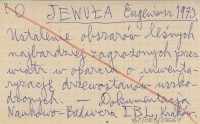 JEWUŁA Eugeniusz 1973
Ustalenie obszarów leśnych
najbardziej zagrożonych przez
wiatr w oparciu o inwenta-
ryzację drzewostanów uszko-
dzonych. — Dokumentacja
Naukowo-Badawcza IBL, Kraków